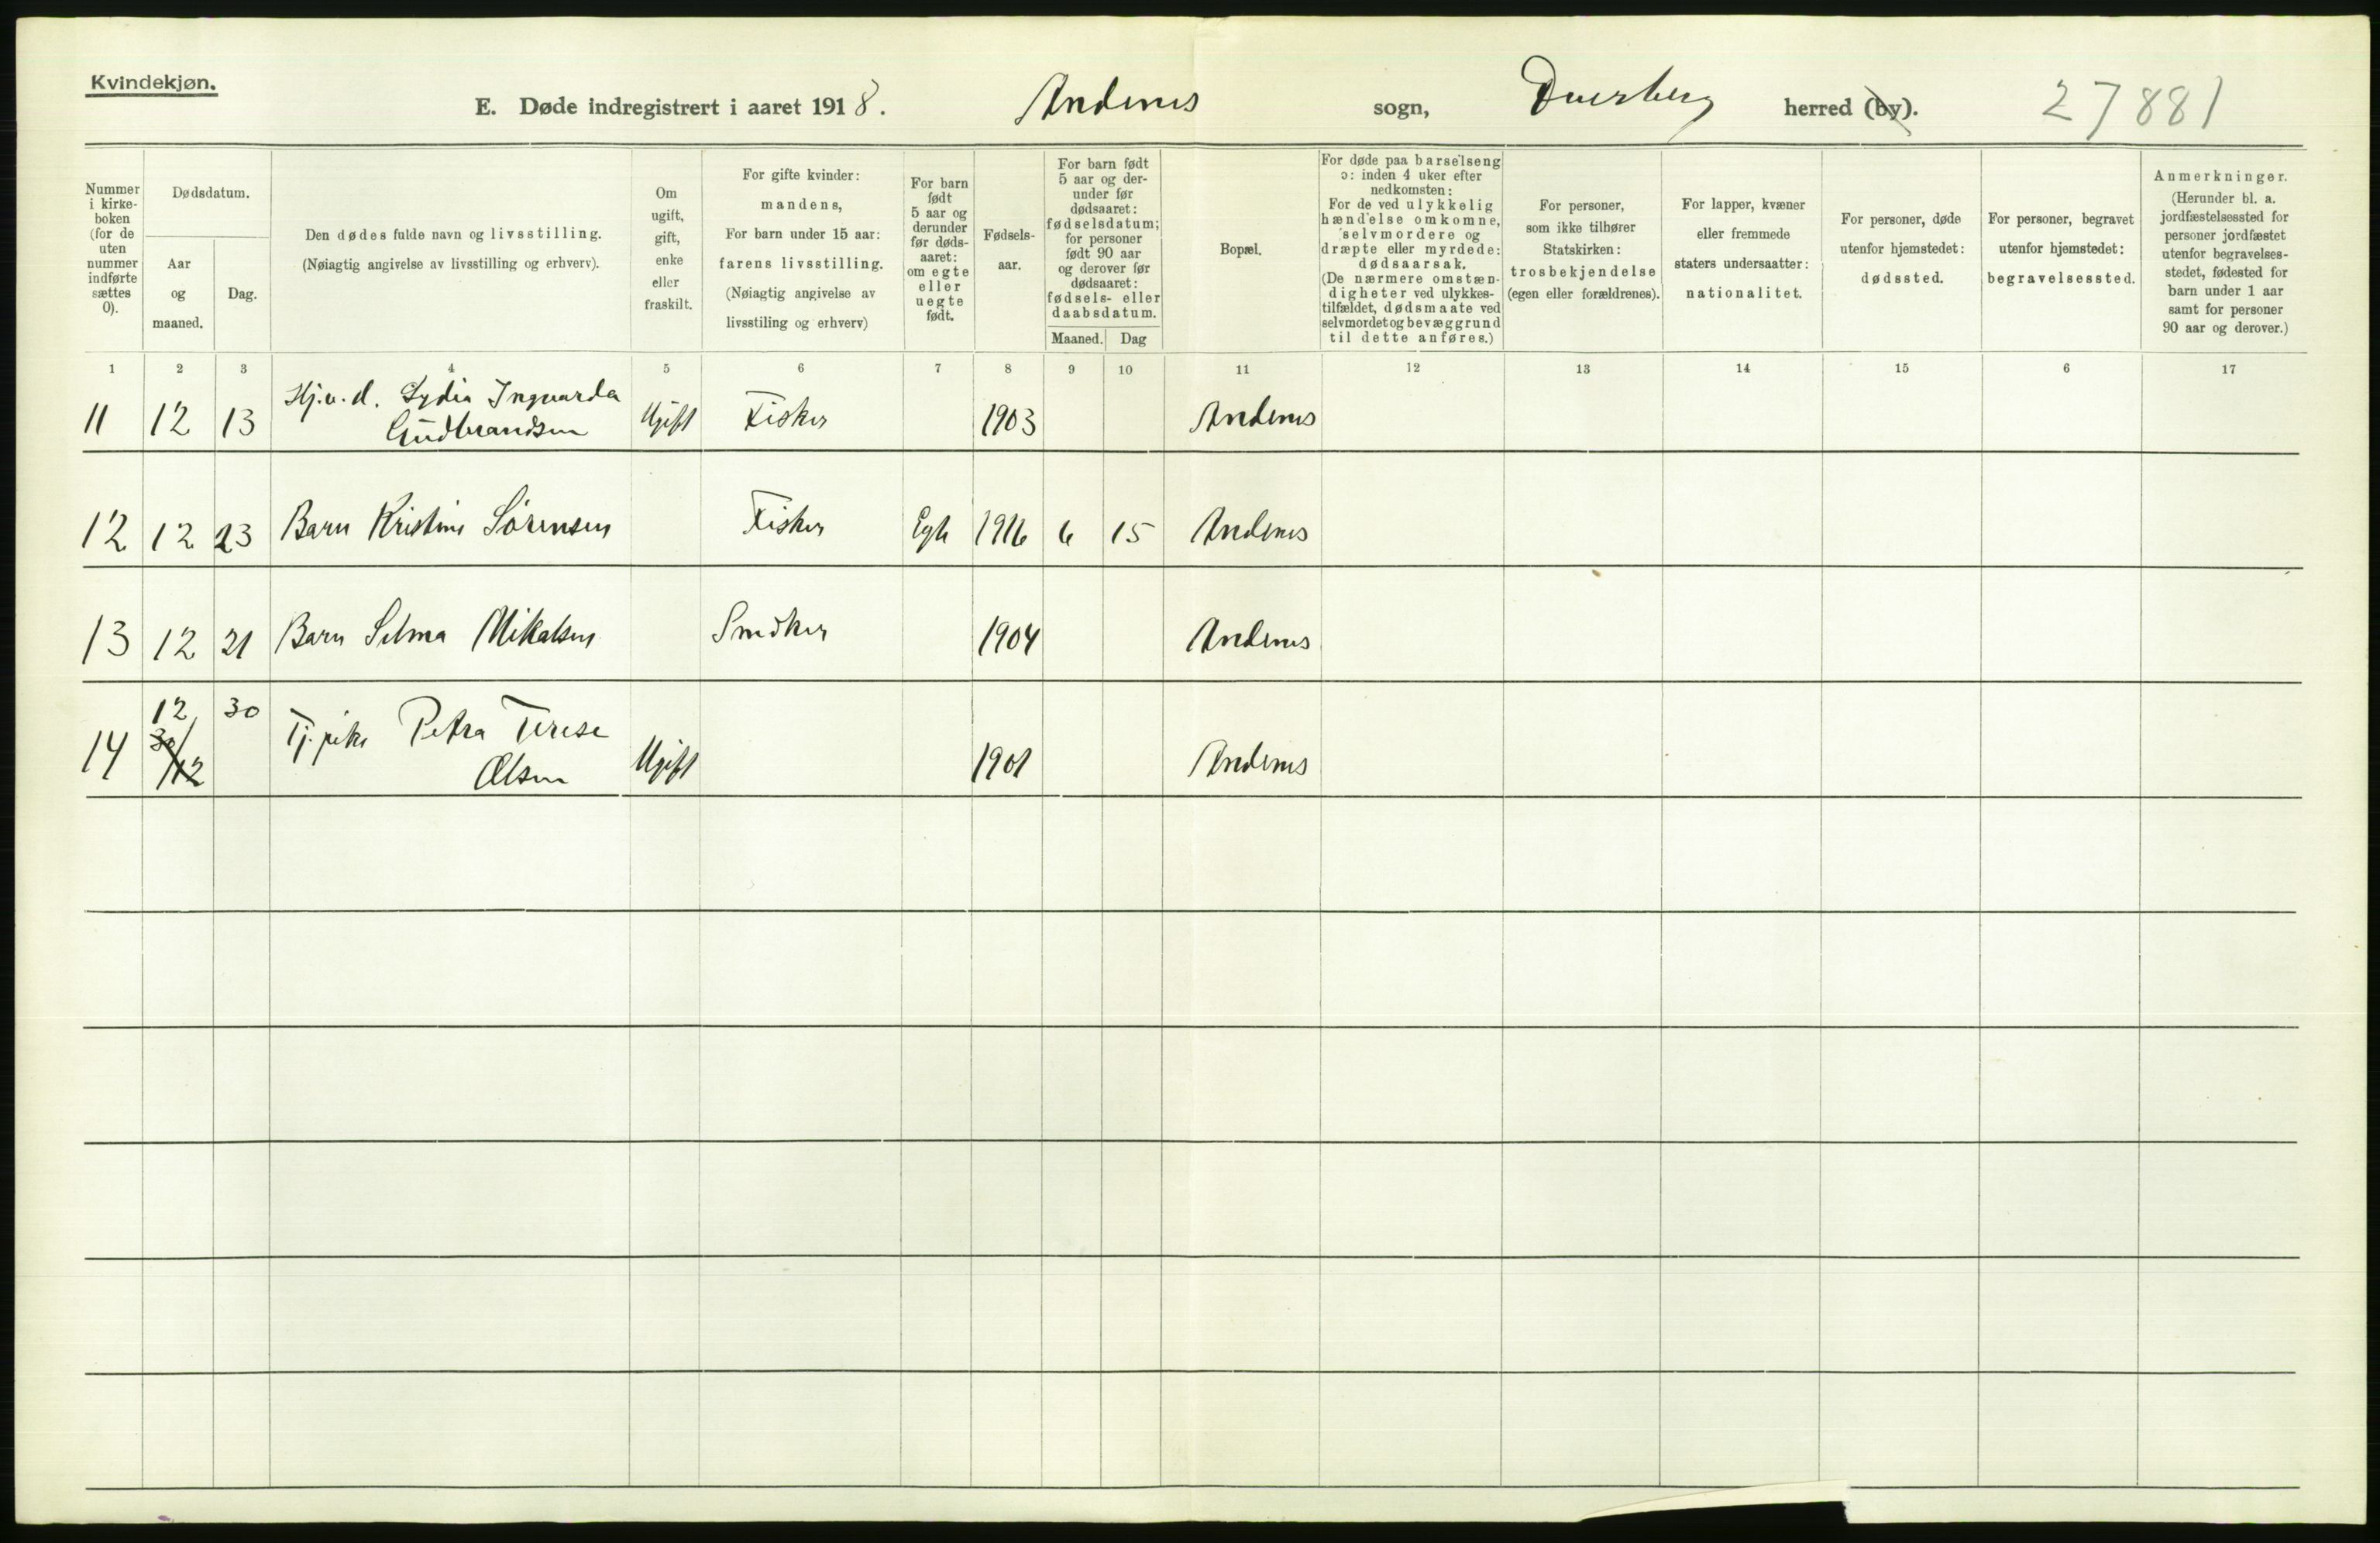 Kvindekjøn.
E. Døde indregistrert i aaret 1918. Andenes sogn, Dverberg herred (by). 27881
Nummer i kirke-boken (for de uten nummer indførte sættes 0).
Dødsdatum.
Aar og maaned.
Dag.
Den dødes fulde navn og livsstilling.
(Nøiagtig angivelse av livsstilling og erhverv).
Om ugift, gift, enke eller fraskilt.
For gifte kvinder:
mandens,
For barn under 15 aar:
farens livsstilling.
(Nøiagtig angivelse av
livsstiling og erhverv)
For barn født 5 aar og derunder før døds-aaret: om egte eller uegte født.
Fødsels-aar.
For barn født 5 aar og der-under før dødsaaret: fødselsdatum; for personer født 90 aar og derover før dødsaaret: fødsels- eller daabsdatum.
Maaned. Dag
Bopæl.
For døde paa barselseng
ɔ: inden 4 uker efter
nedkomsten:
For de ved ulykkelig
hændelse omkomne,
selvmordere og
dræpte eller myrdede:
dødsaarsak.
(De nærmere omstæn-
digheter ved ulykkes-
tilfældet, dødsmaate ved
selvmordet og bevæggrund
til dette anføres.)
For personer,
som ikke tilhører
Statskirken:
trosbekjendelse
(egen eller forældrenes).
For lapper, kvæner
eller fremmede
staters undersaatter:
nationalitet.
For personer, døde
utenfor hjemstedet:
dødssted.
For personer, begravet
utenfor hjemstedet:
begravelsessted.
Anmerkninger.
(Herunder bl. a.
jordfæstelsessted for
personer jordfæstet
utenfor begravelses-
stedet, fødested for
barn under 1 aar
samt for personer
90 aar og derover.)
1 2 3 4 5 6 7 8 9 10 11 12 13 14 15 6 17
11 12 13 Hj.v.d. Lydia Ingvarda
Gudbrandsen Ugift Fisker 1903 Andenes
12 12 23 Barn Kristine Sørensen Fisker Egte 1916 6 15 Andenes
13 12 21 Barn Selma Mikalsen Snedker 1904 Andenes
12 30
14 30/12 Tj.pike Petra Terese
Olsen Ugift 1901 Andenes